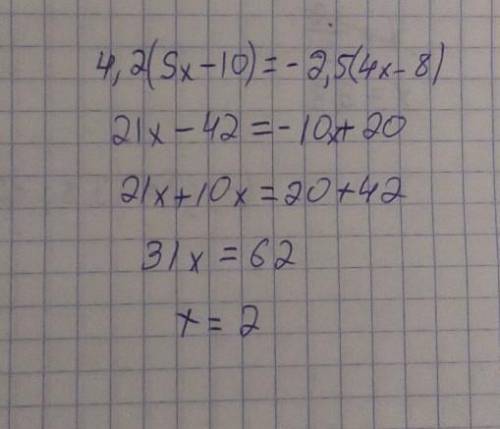 4,2(5x-10)=-2,5(4x-8)
21x-42=-10x+20
21x+10x=20+42
31x=62
x=2